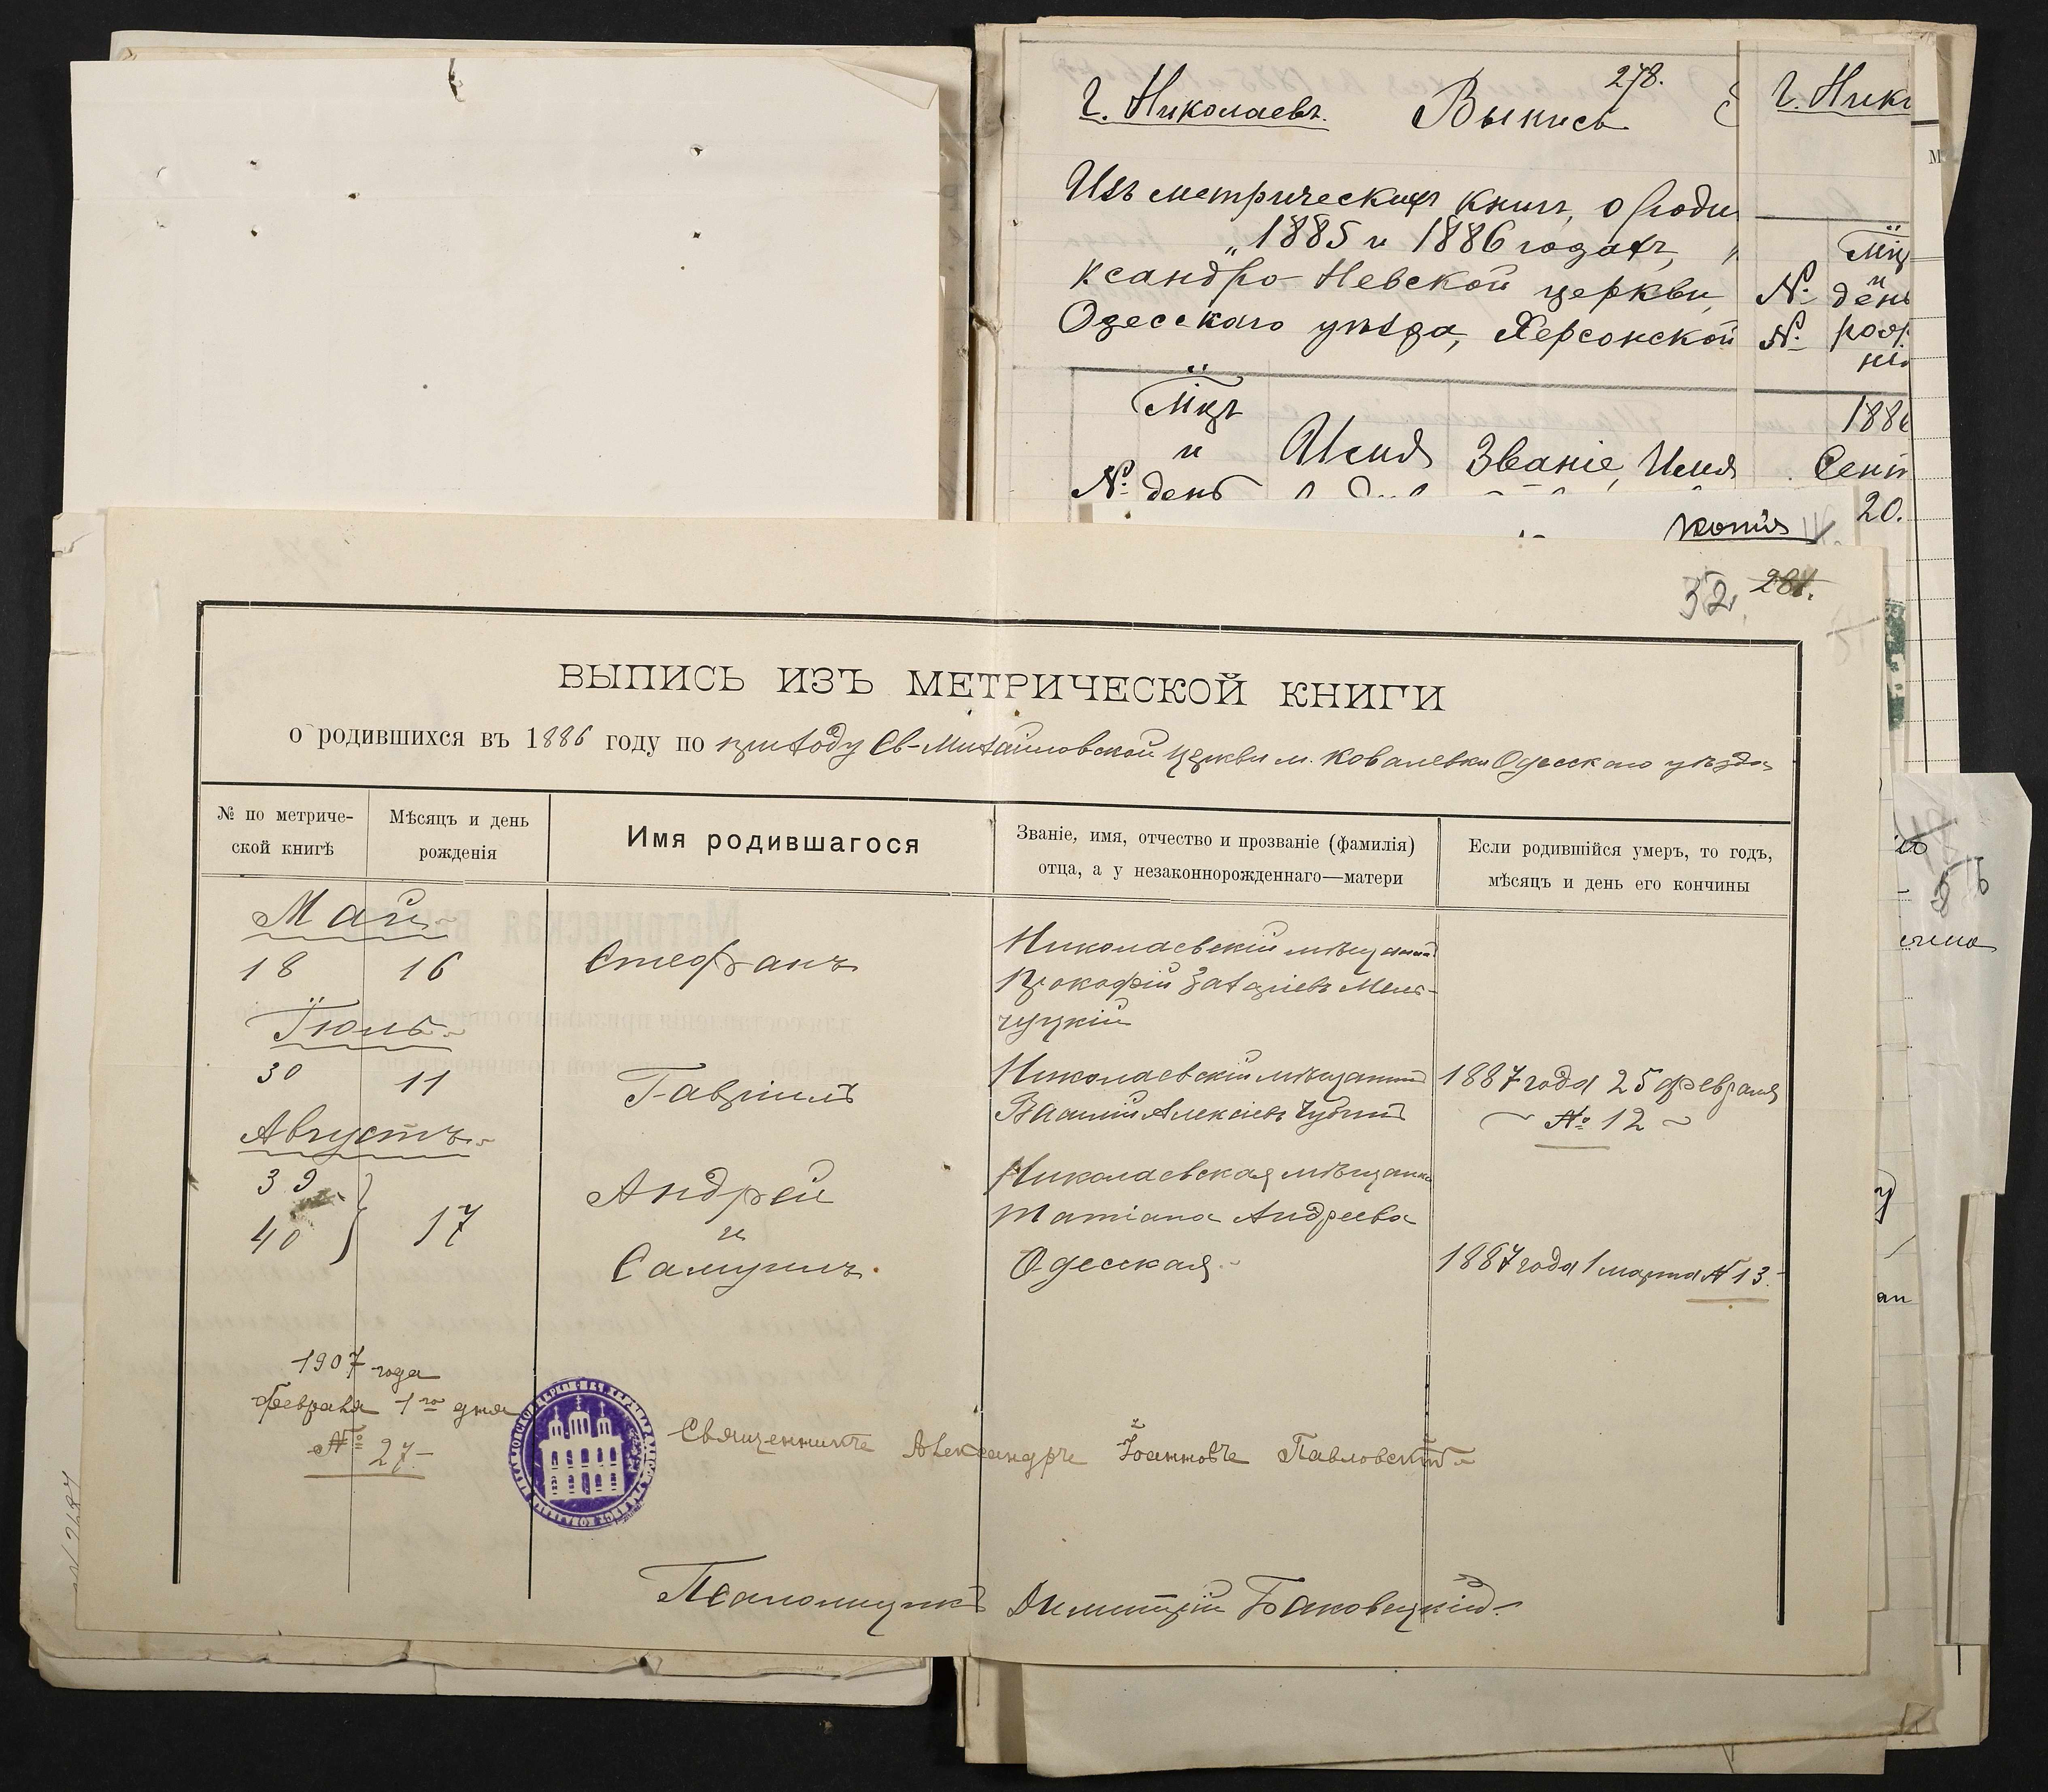 278.
г. Николаевъ. Выпись
Изъ метрическихъ книгъ, о роди
„1885 и 1886 годахъ, „
ксандро-Невской церкви,
Одесскаго уѣзда, Херсонской
Мцъ
и
№ день
Имя
Званіе, Имя
г. Нико
Мцъ
и
№ день
№ рож
1886
Сент
20.
копія
52. 281.
ВЫПИСЬ ИЗЪ МЕТРИЧЕСКОЙ КНИГИ
о родившихся въ 1886 году по приходу Св-Михайловской церкви м. Ковалевки Одесскаго уѣзда
№ по метриче-
ской книгѣ
Мѣсяцъ и день
рожденія
Имя родившагося
Званіе, имя, отчество и прозваніе (фамилія)
отца, а у незаконнорожденнаго—матери
Если родившійся умеръ, то годъ,
мѣсяцъ и день его кончины
Май
18 16 Стефанъ
Николаевскій мѣщанинъ
Прокофій Захаріевъ Мель-
ницкій
Іюль
30 11 Гавріилъ
Николаевскій мѣщанинъ
Василій Алексіевъ
1887 года 25 февраля
№ 12
Августъ
39
40 17
Андрей
и
Самуилъ.
Николаевская мѣщанка
Татіана Андреева
Одесская
1887 года 1 марта № 13.
1907 года
Февраля 1го дня
№ 27
Священникъ Александръ Іоанновъ Павловскій
Псаломщикъ Димитрій Баковецкій